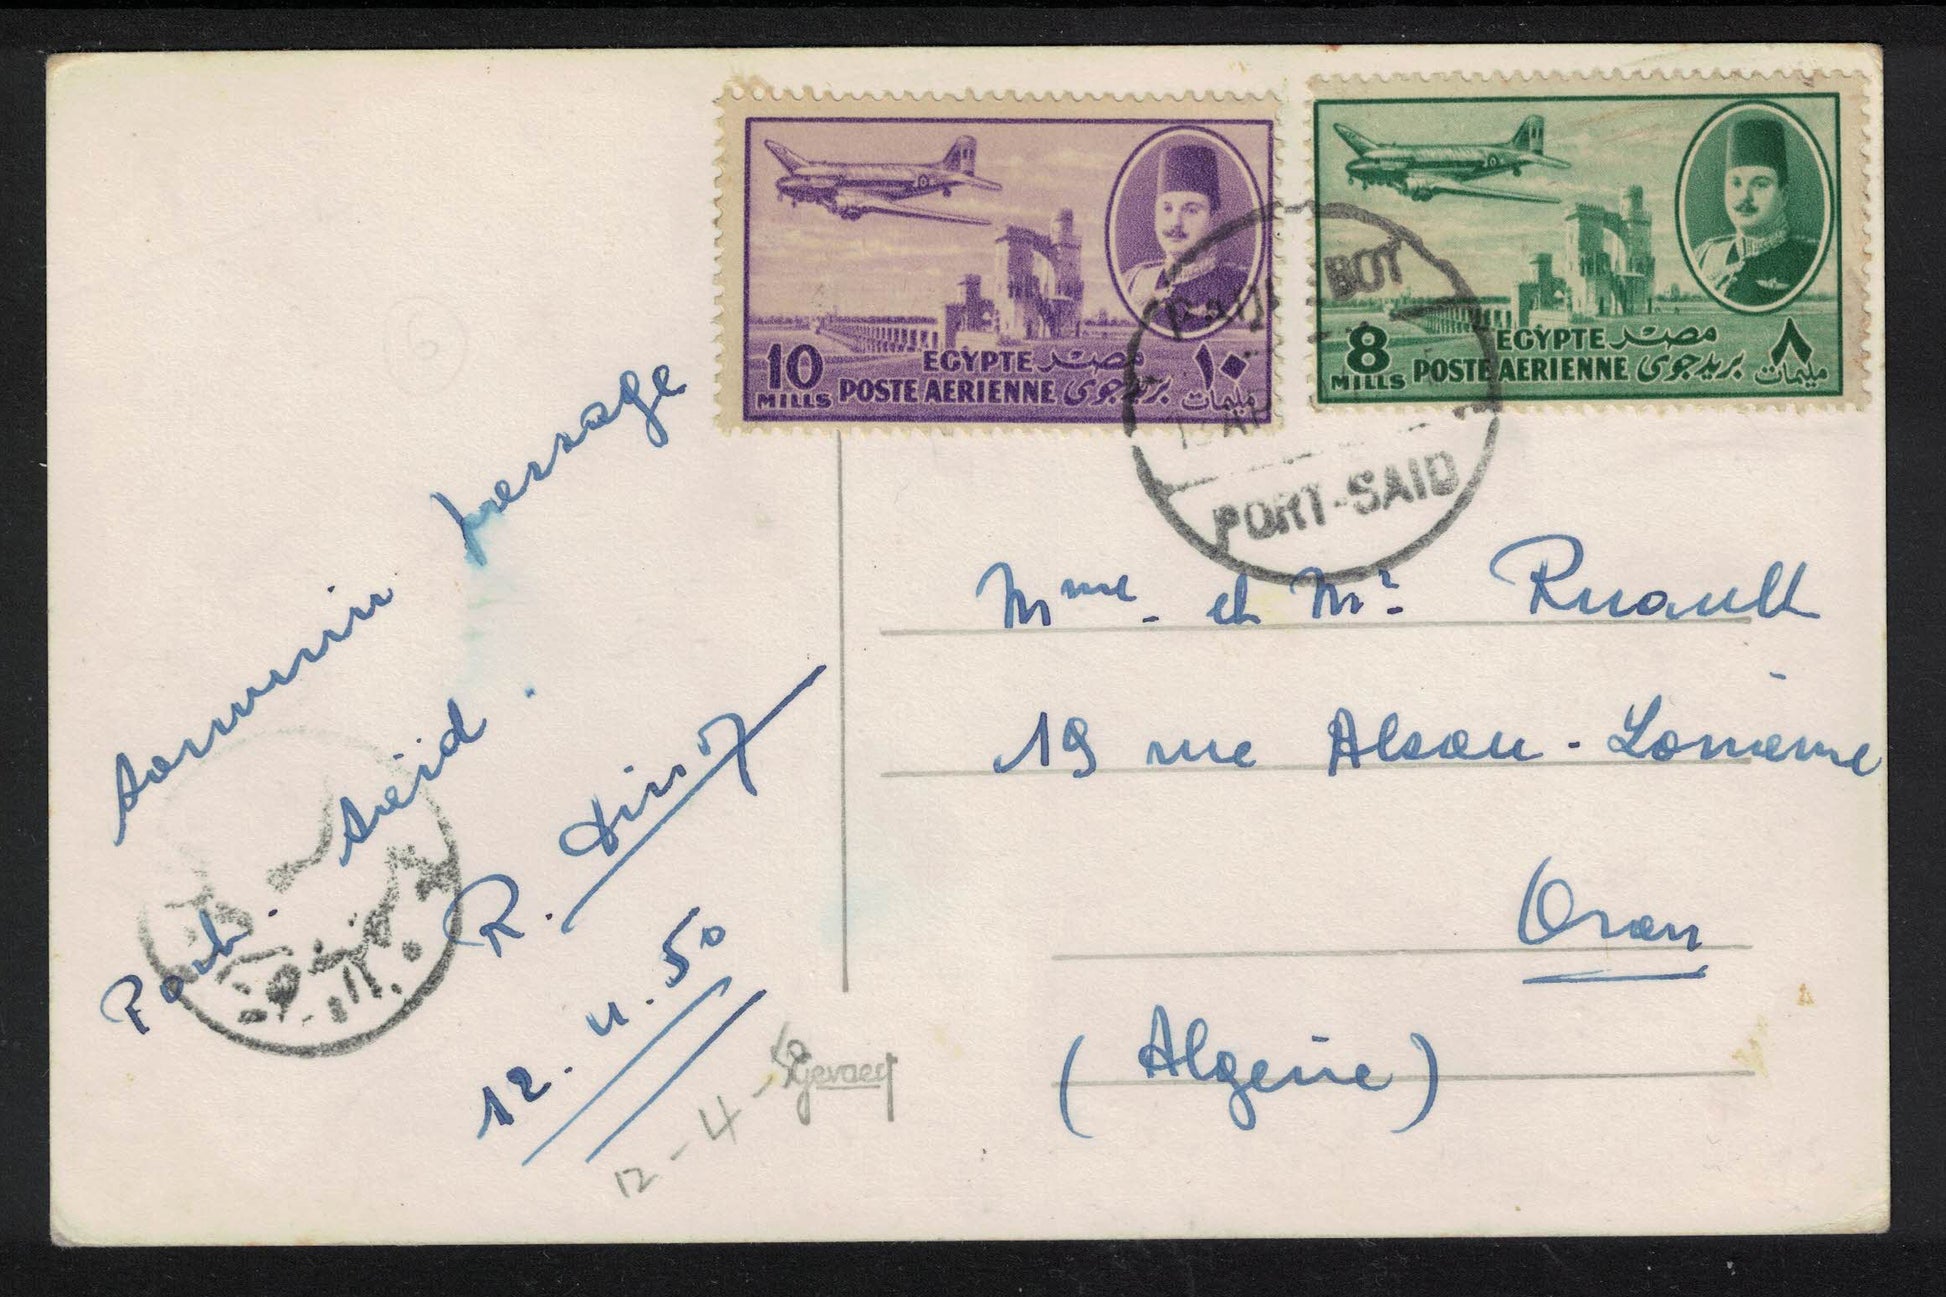 10
MILLS
EGYPTE مصر
POSTE AERIENNE بريد جوى
١٠
مليمات
8
MILLS
EGYPTE مصر
POSTE AERIENNE بريد جوى
٨
مليمات
PAQUEBOT
PORT-SAID
Souvenir passage
Port. Saïd.
R.
12.4.50
12-4-50
Gevaert
Mme. et Mr. Ruault
19 rue Alsace-Lorraine
Oran
(Algérie)